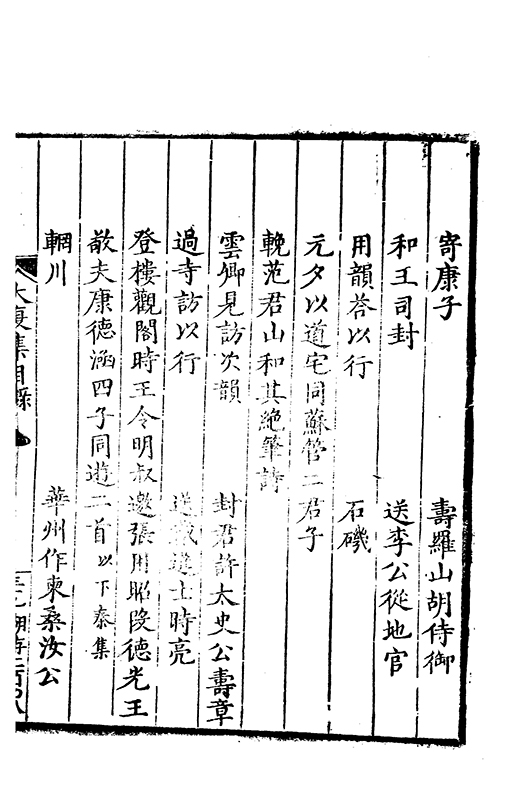 寄康子　壽羅山胡侍御
和王司封　送李公從地官
用韻答以行　石磯
元夕以道宅同蘇管二君子
輓范君山和其絶筆詩
雲卿見訪次韻　封君許太史公壽章
過寺訪以行　送戚進士時亮
登樓觀閣時王令明叔邀張用昭段德光王
敬夫康德涵四子同遊二首以下秦集
輞川　華州作柬桑汝公
大復集目錄